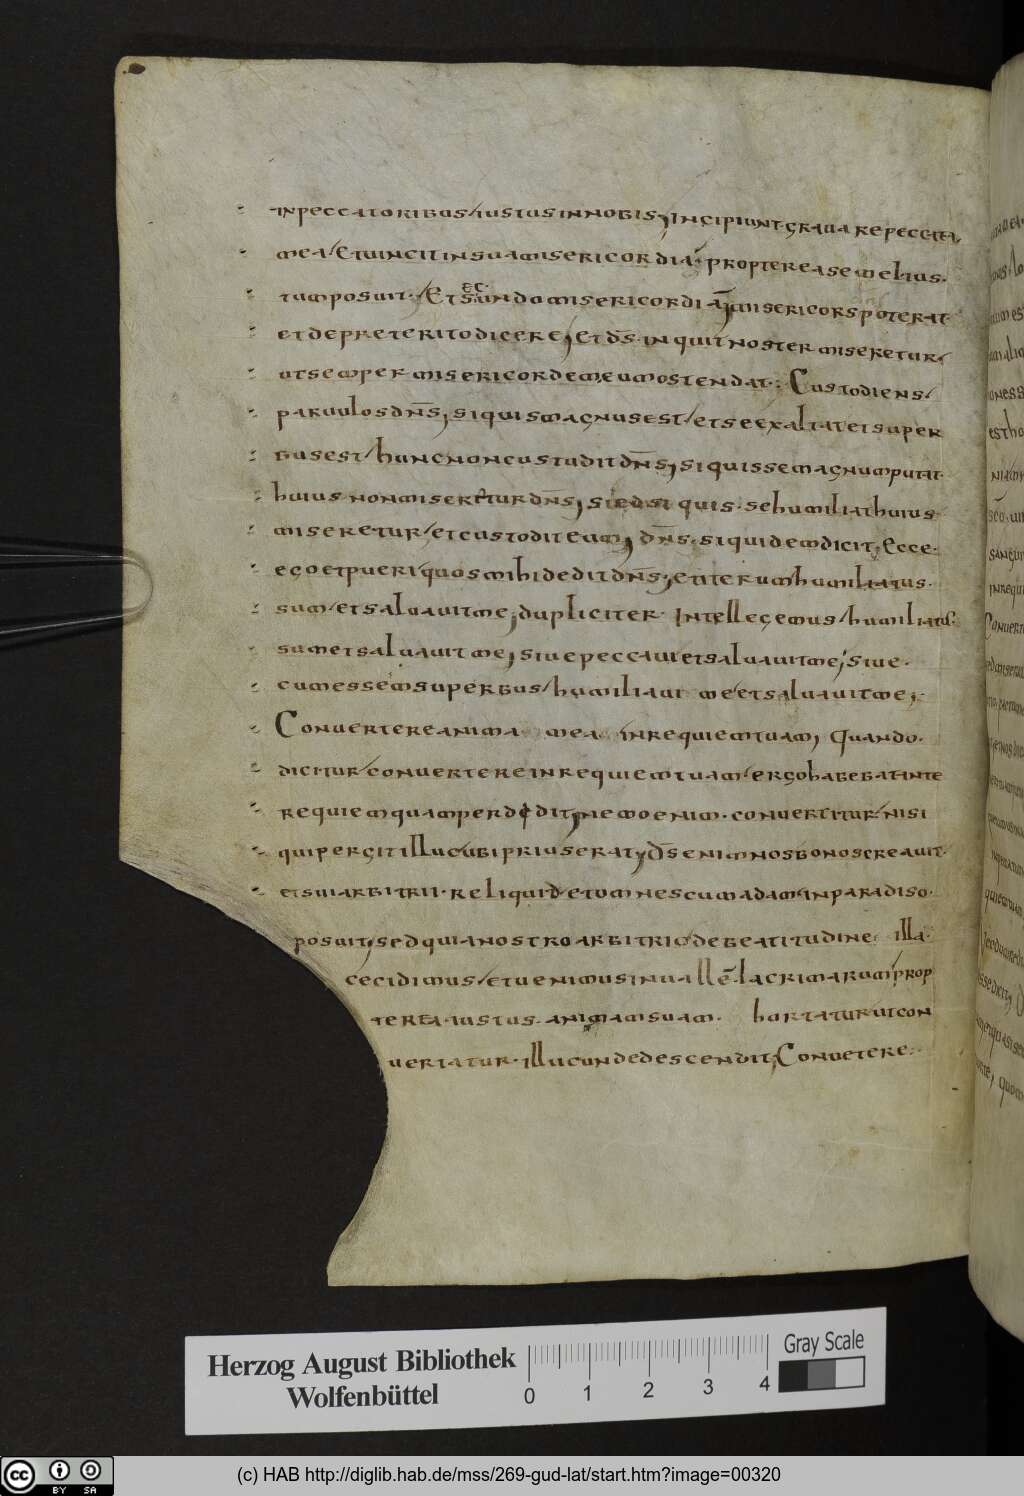 inpeccatoribus/iustus innobis; Incipiunt graua repeccata
mea/ Etuincit insuamisericordia; propterea se melius.
tumposuit./ Et secundo misericordia; misericors poterat
et depreterito dicere; Et dn̄s. inquit noster miseretur/
ut semper misericordem; eum ostendat:. Custodiens/
paruulos dn̄s; siquis magnus est/ et se exaltat et super
bus est/ hunc non custodit dn̄s; siquis se magnum putat.
huius non miseretur dn̄s; sied si quis. sehumiliat huius
miseretur/ et custodit eum; dn̄s. siquidem dicit; Ecce.
ego et pueri quos mihi dedit dn̄s; et iterum humiliatus.
sum/ et saluauit me; dupliciter Intellegemus/ humiliatus
sum et saluauit me; siue peccaui et saluauit me; siue.
cum essem superbus/ humiliaui me et saluauit me;.
Conuertere anima mea inrequiem tuam; Quando.
dicitur/ conuertere inrequiem tuam/ ergo habebat ante
requiem quam perdedit; nemo enim. conuertitur/ nisi
qui pergit illuc ubi prius erat; D̄s enim nos bonos creauit.
et sui arbitrii. reliquid et omnes cum adam in paradiso.
posuit; sed quia nostro arbitrio de beatitudine illa.
cecidimus/ et uenimus in uallē lacrimarum; prop
terea. iustus. animam suam. hortatur ut con
uertatur. illuc unde descendit; Conuetere:.
Herzog August Bibliothek
Wolfenbüttel
0 1 2 3 4
Gray Scale
cc BY SA
(c) HAB http://diglib.hab.de/mss/269-gud-lat/start.htm?image=00320